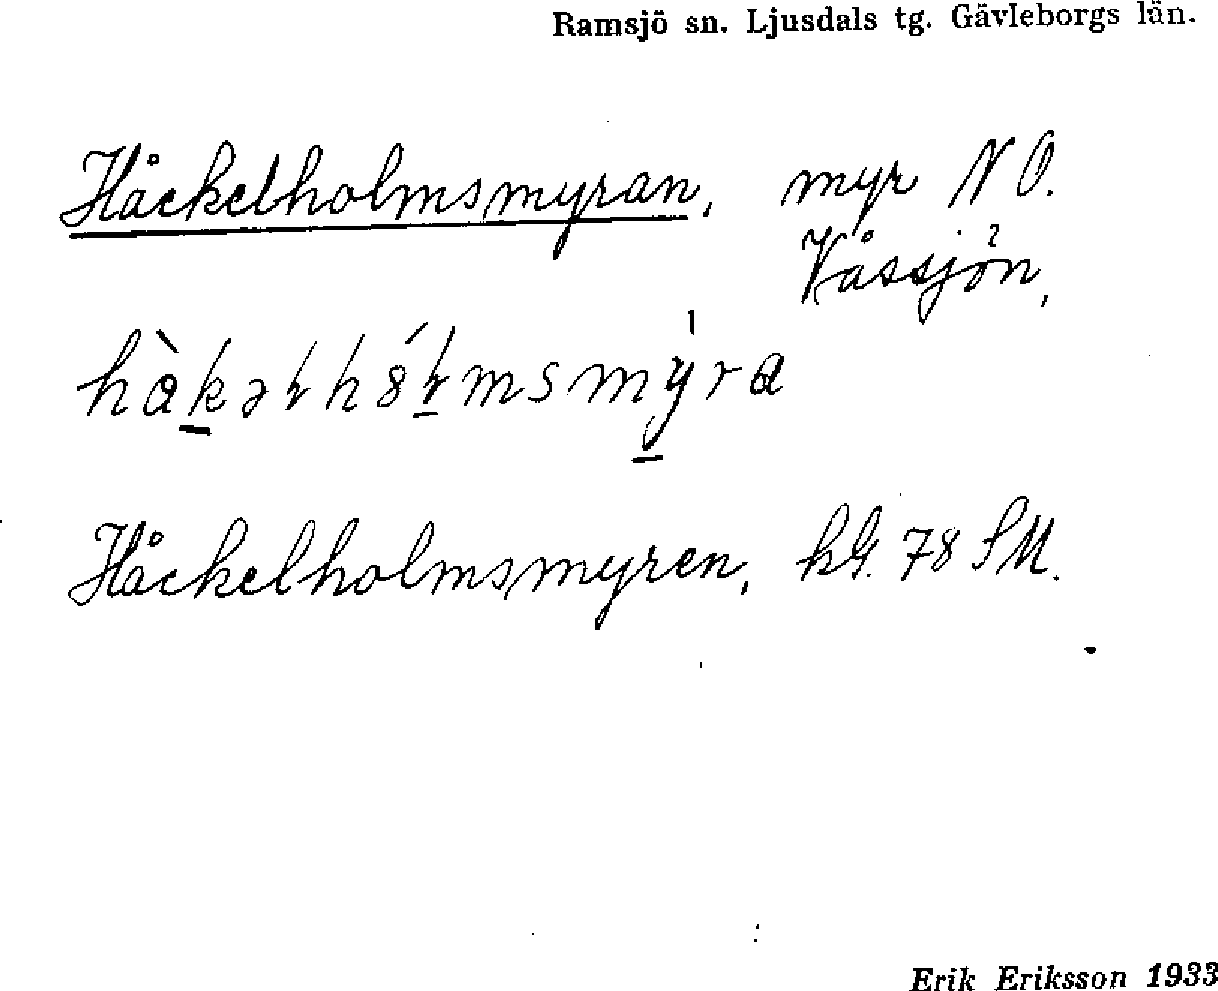 Ramsjö sn. Ljusdals tg. Gävleborgs län.
Håckelholmsmyran, myr NO.
Våssjön,
Håckelholmsmyren, kG. 78 SM.
Erik Eriksson 1933